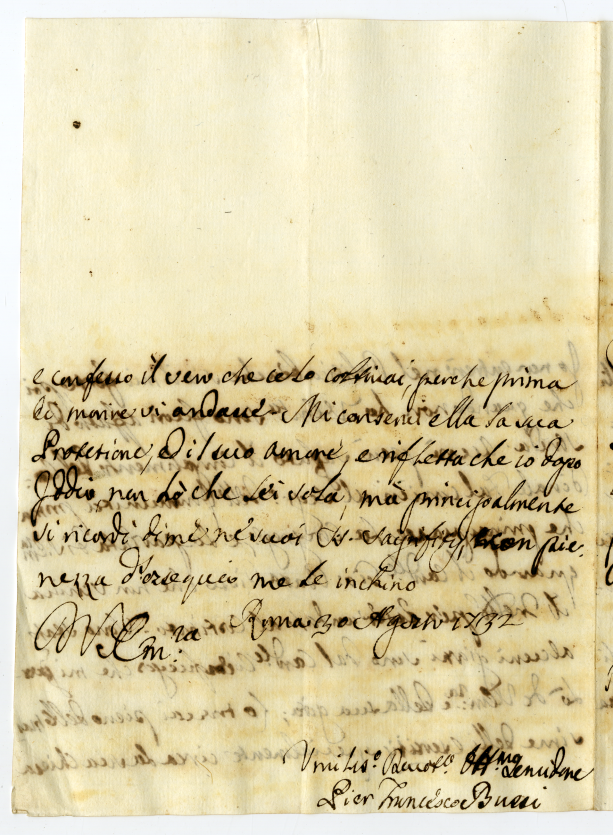 e confesso il vero che ce lo costrinsi, perche prima
di morire vi andava. Mi conservi ella la sua
Protetione, ed il suo amore, e rifletta che io dopo
Iddio, non hò che Lei sola, mà principalmente
si ricordi di mè né suoi Ss. Sagrifizij, e con pie-
nezza d'ossequio me le inchino
V. Em.za Roma 30 Agosto 1732
Umilis.o Devot.o Obb.mo Servidore
Pier Francesco Bussi